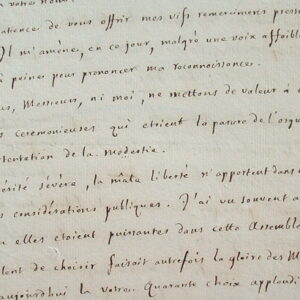 votre nom
atience de vous offrir mes vifs remerciments press
Il m'amène, en ce jour, malgré une voix affaibli
à peines pour prononcer ma reconnoissance.
us, Messieurs, ni moi, ne mettons de valeur à
s ceremonieuses qui etoient la parure de l'orgu
stentation de la modestie.
érité sévère, la mâle liberté n'apportent dans
s considérations publiques. J'ai vu souvent a
elles etoient puissantes dans cette Assemble
lent de choisir faisoit autrefois la gloire des M
aujourd'hui la votre. Quarante choix applaudi